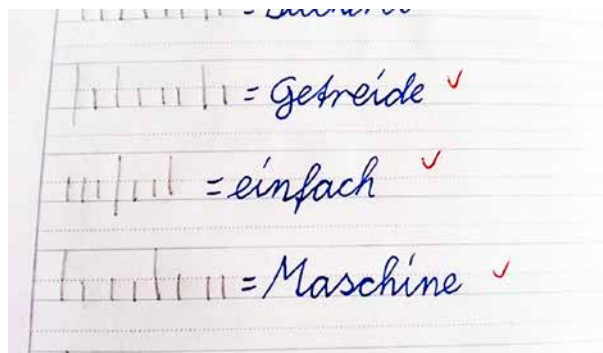 = Getreide
= einfach
= Maschine